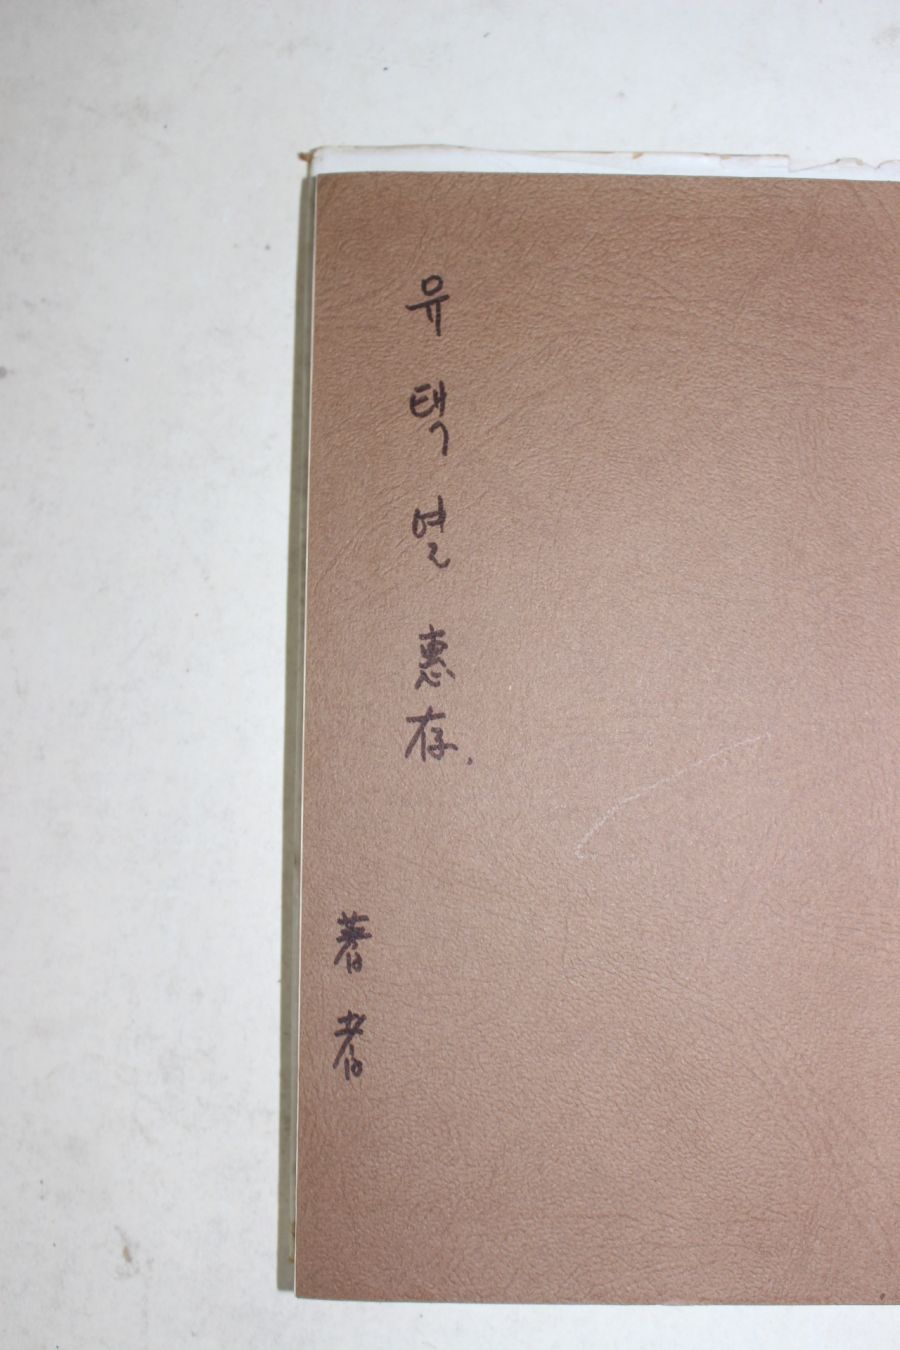 유택열 惠存.
著者